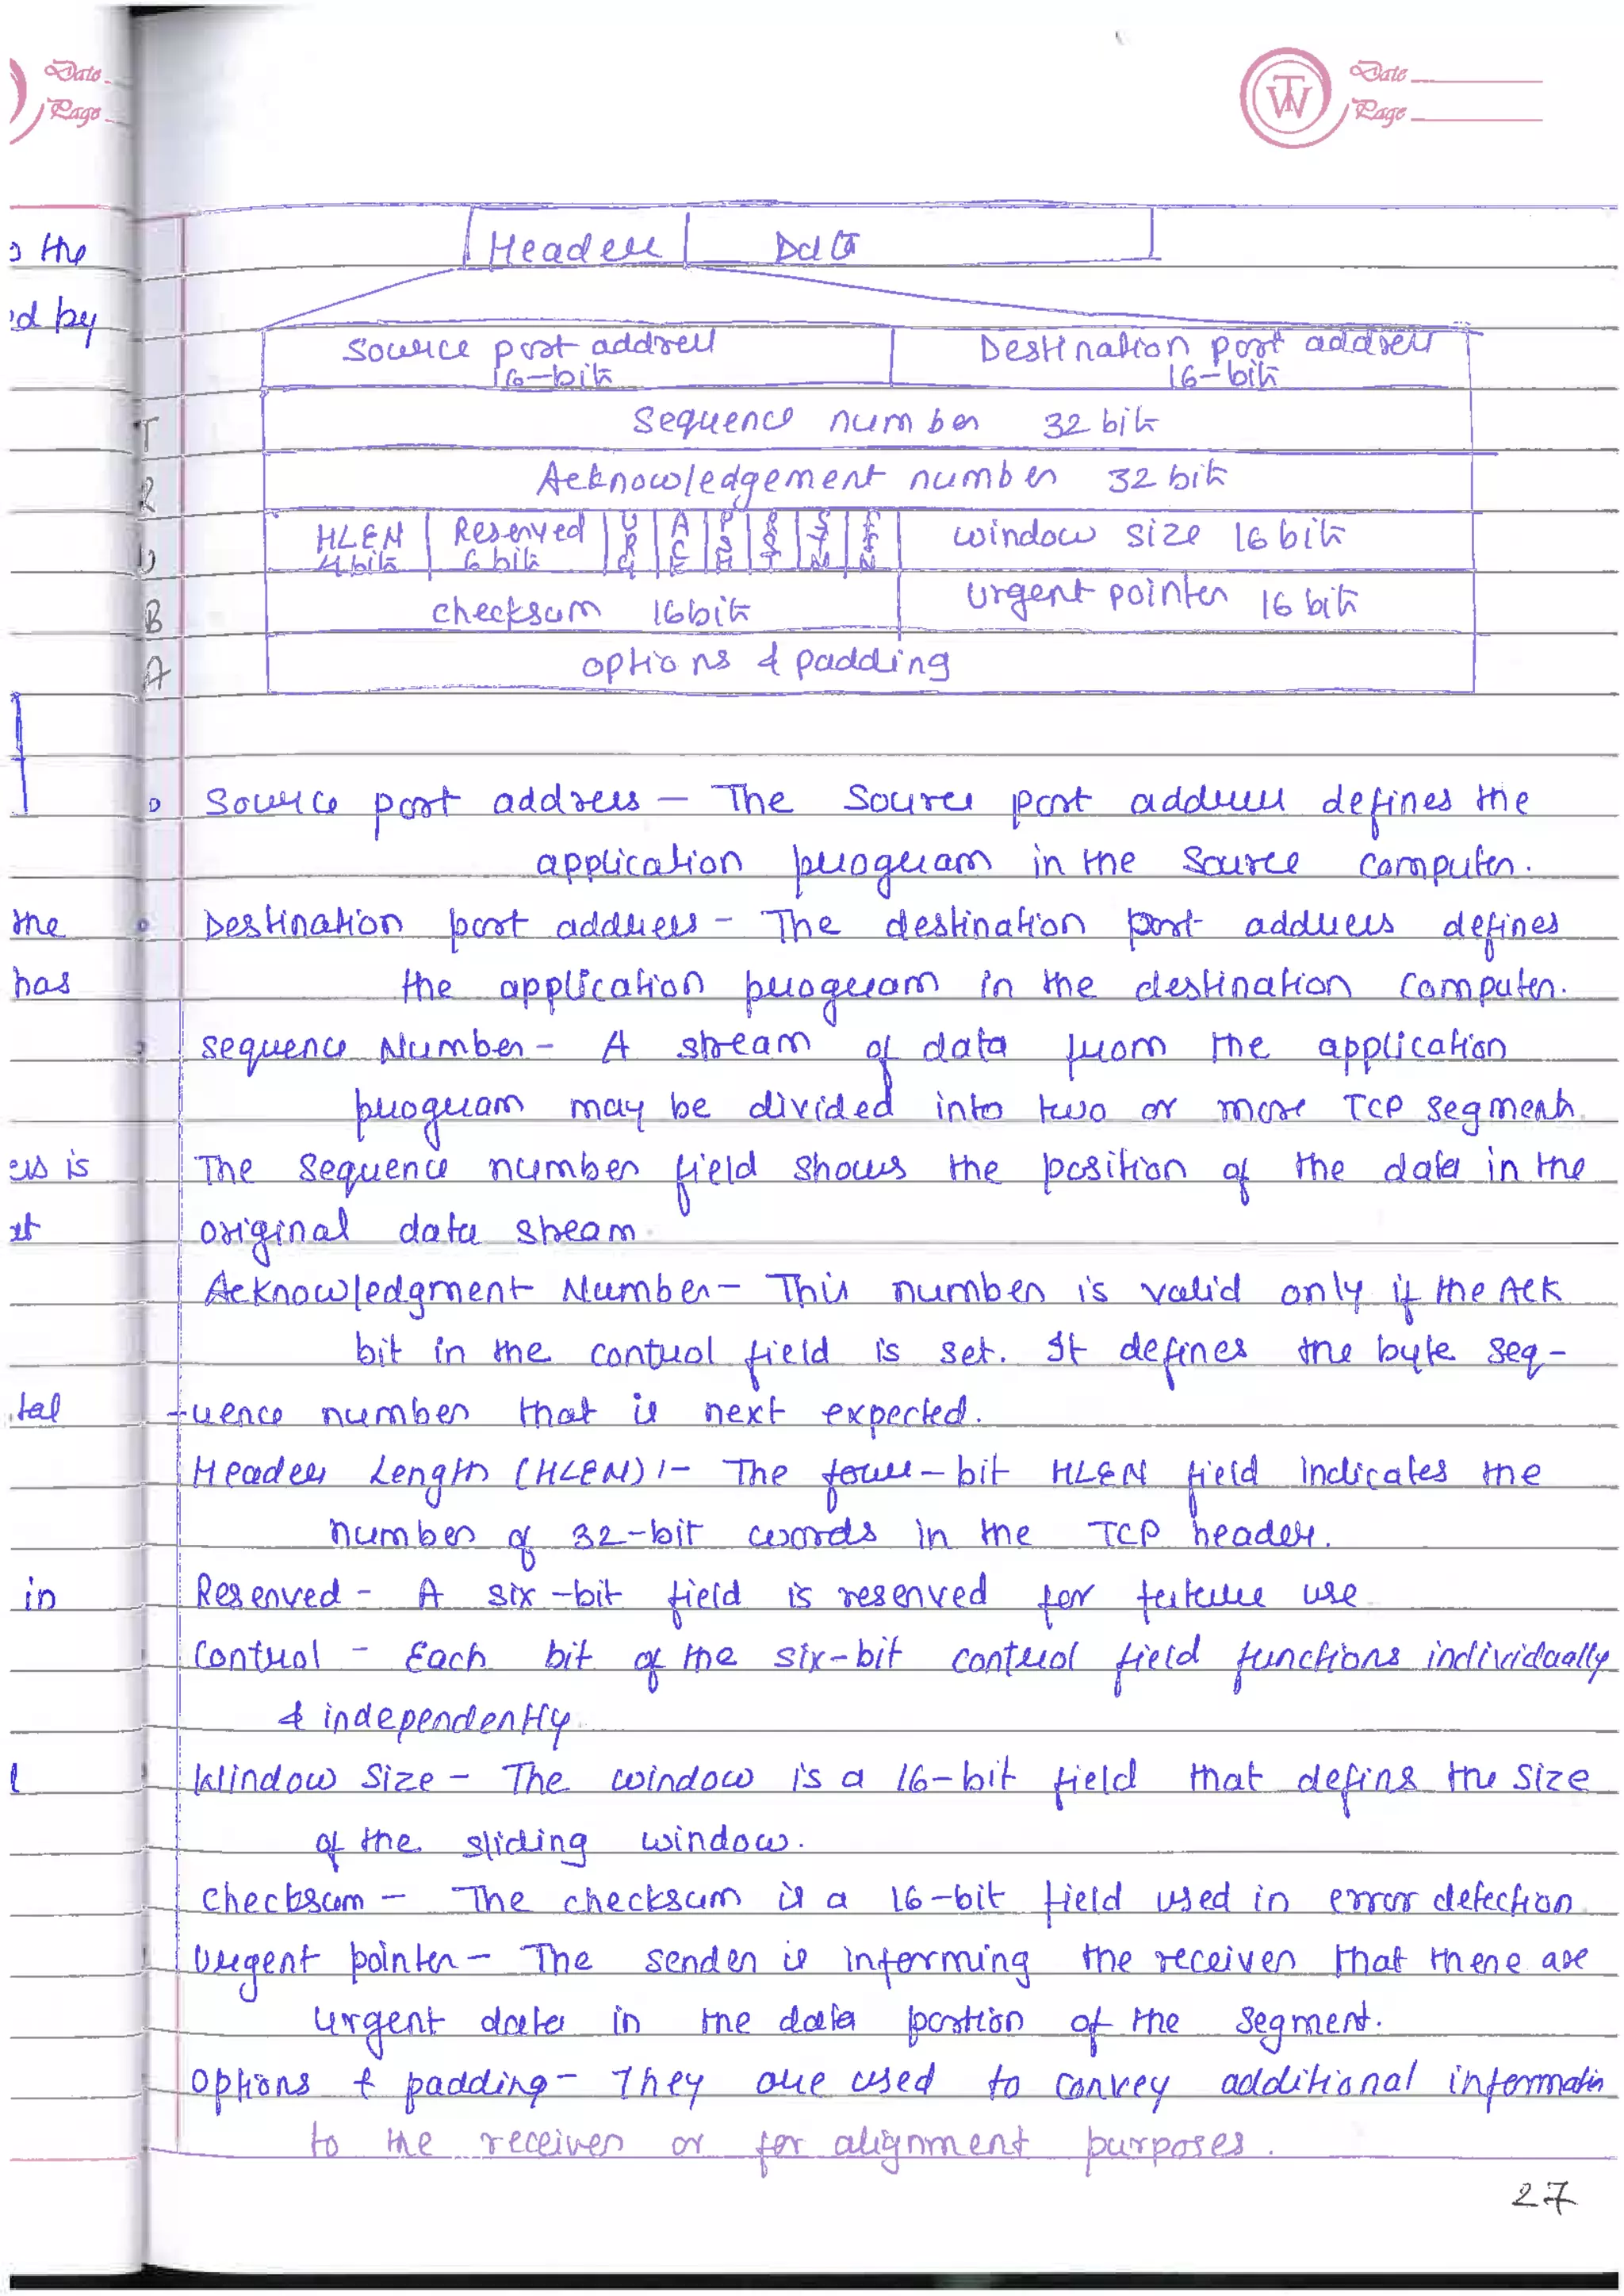 Date
Page
Date
Page
TW
the
ed by
Header Data
Source port address Destination port address
16-bit 16-bit
Sequence number 32 bit
Acknowledgement number 32 bit
HLEN Reserved URG ACK PSH RST SYN FIN window size 16 bit
4 bit 6 bit
checksum 16 bit urgent pointer 16 bit
options & padding
T
R
U
B
A
Source port address - The Source port address defines the
application program in the source computer.
the
Destination port address - The destination port address defines
has
the application program in the destination computer.
sequence Number - A stream of data from the application
program may be divided into two or more TCP segments.
is
The sequence number field shows the position of the data in the
original data stream.
Acknowledgment Number - This number is valid only if the ACK
bit in the control field is set. It defines the byte seq-
tal
-uence number that is next expected.
Header Length (HLEN) :- The four-bit HLEN field indicates the
number of 32-bit words in the TCP header.
in
Reserved - A six-bit field is reserved for future use
Control - Each bit of the six-bit control field functions individually
& independently.
l
Window Size - The window is a 16-bit field that defins the size
of the sliding window.
Checksum - The checksum is a 16-bit field used in error detection.
Urgent pointer - The sender is informing the receiver that there are
urgent data in the data portion of the segment.
Options & padding - They are used to convey additional informatin
to the receiver or for alignment purposes.
27